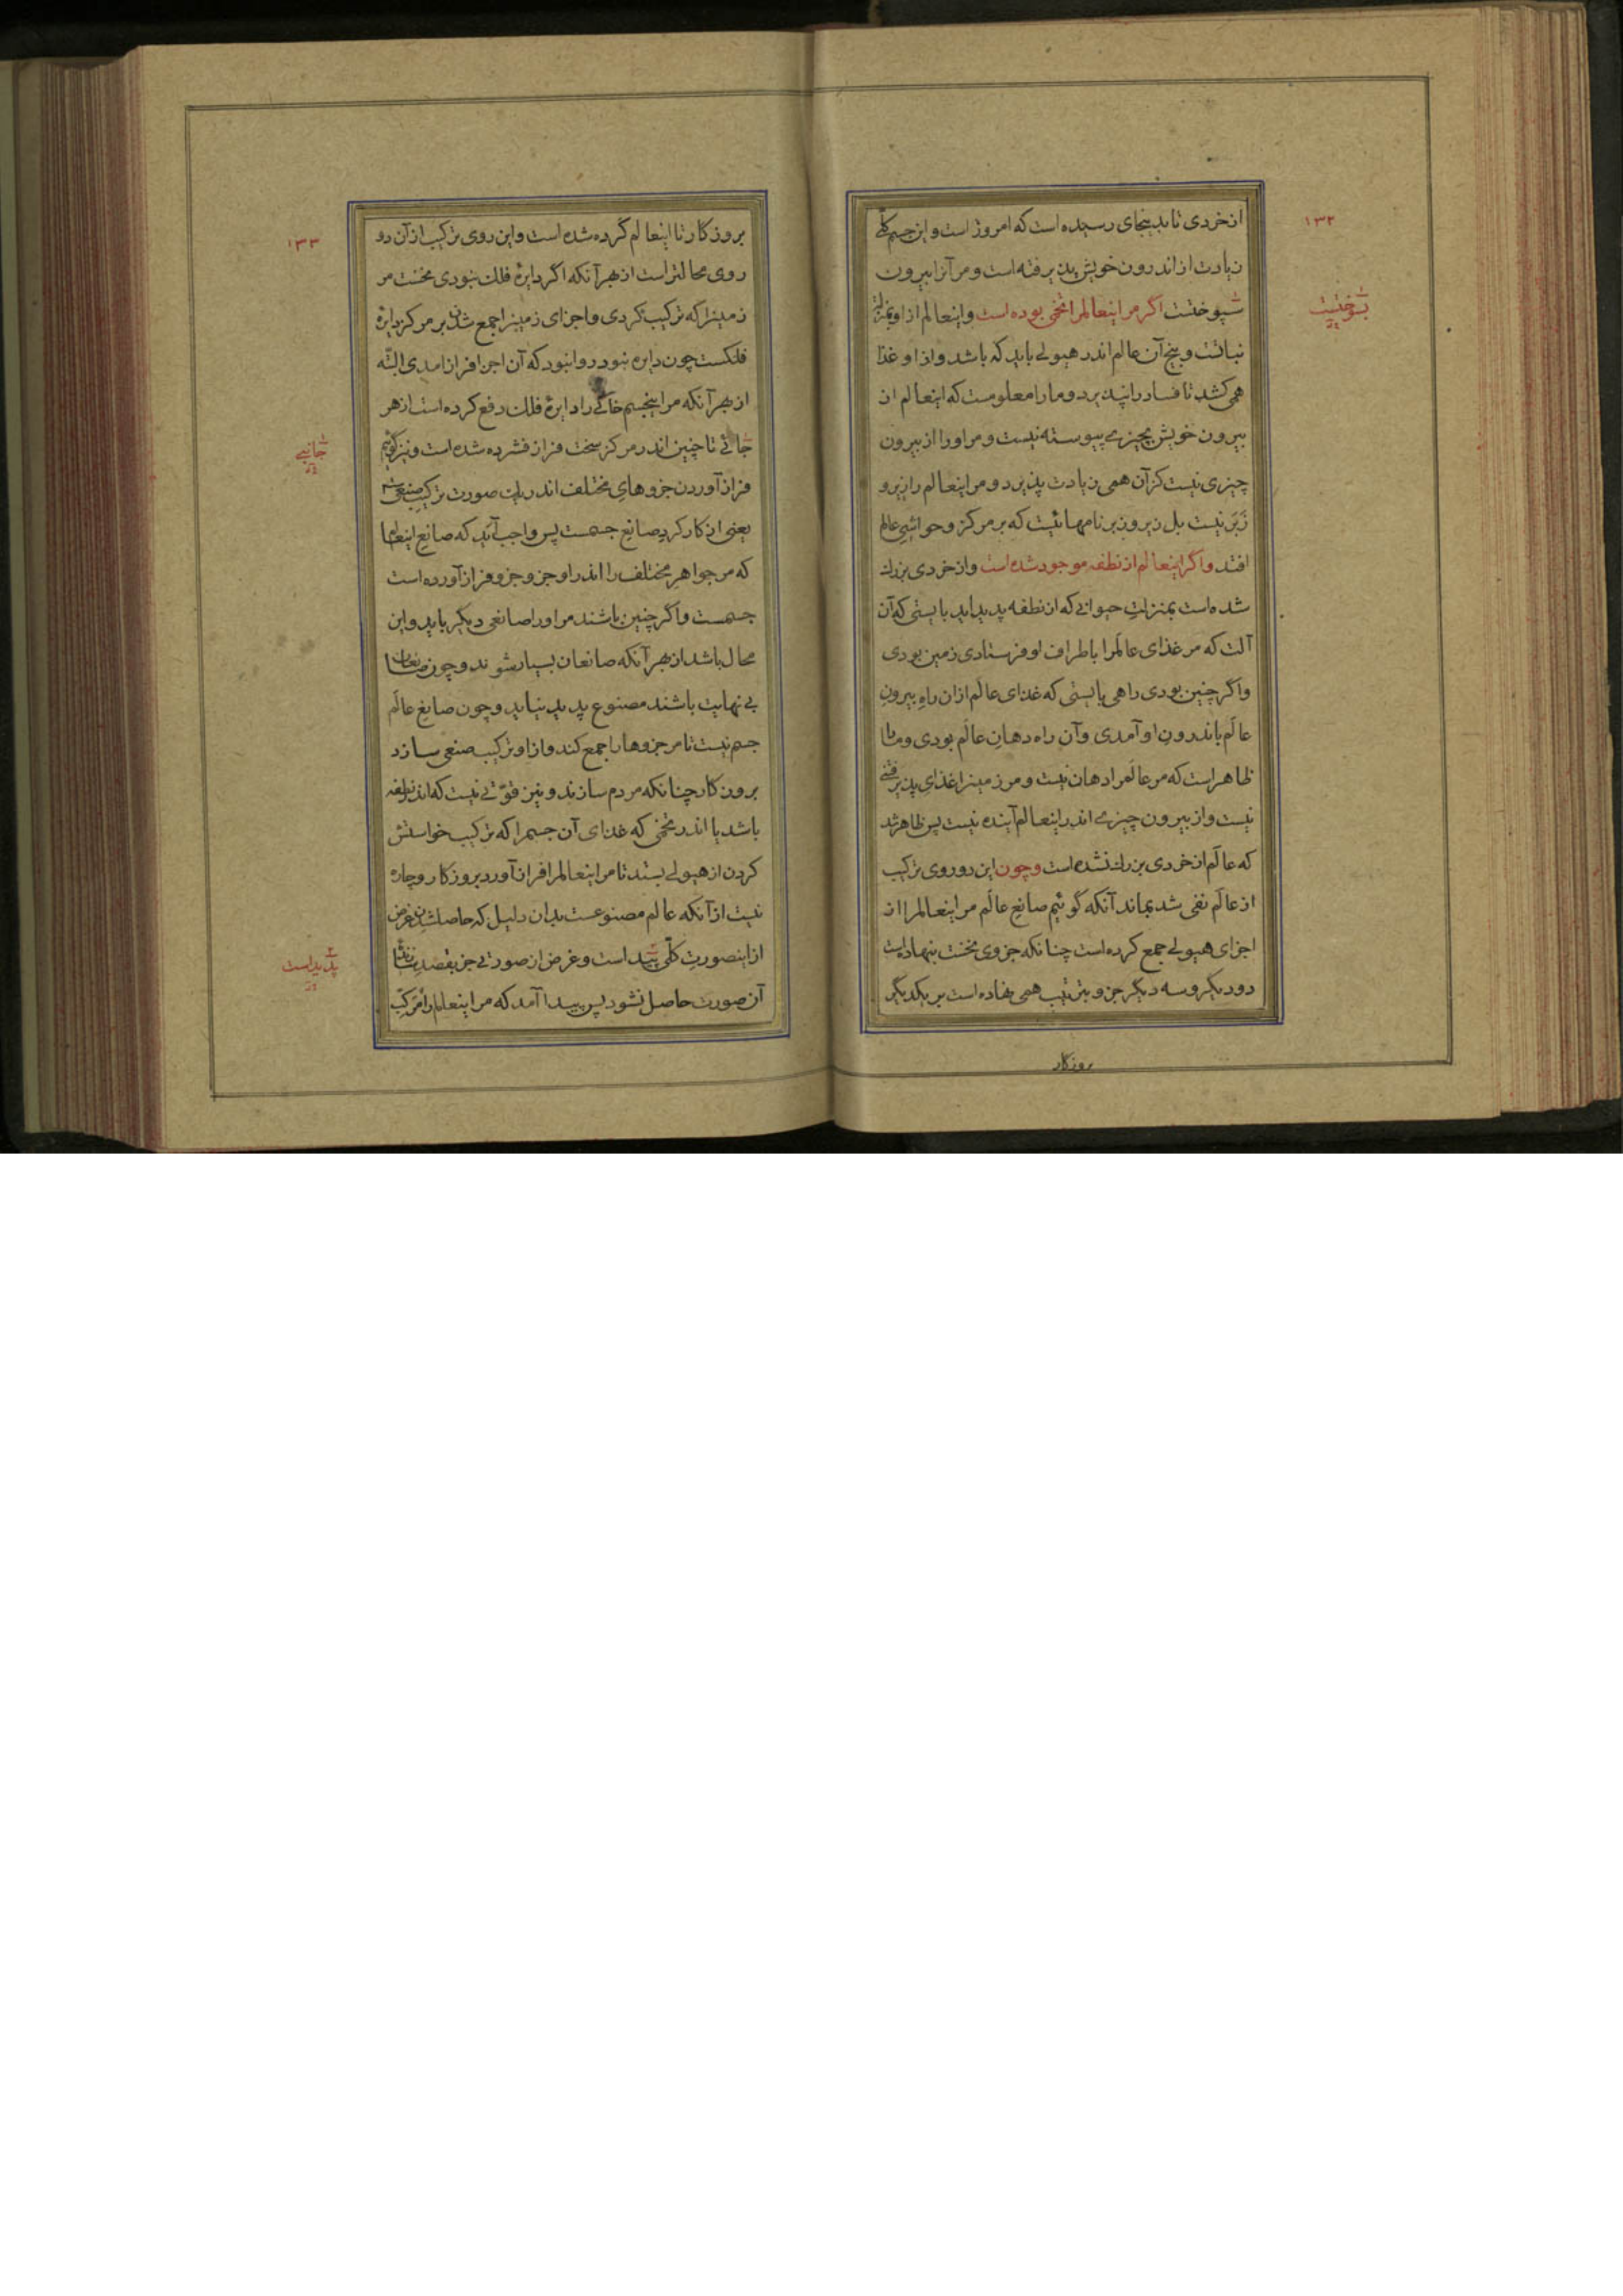 ۱۳۲
از خردی تا بدینجای رسیده است که امروز است و این جسم کلّی
زیادت از اندرون خویش پذیرفته است و مر آنرا بیرون
سپوختست اگر مر اینعالمرا تخمی بوده است و اینعالم ازاو بمنزلت
بسوختست
نباتست و بیخ آن عالم اندر هیولی باید که باشد و ازاو غذا
همی کشد تا فساد را نپذیرد و ما را معلومست که اینعالم از
بیرون خویش بچیزی پیوسته نیست و مر اورا از بیرون
چیزی نیست کز آن همی زیادت پذیرد و مر اینعالم را زیر و
زبر نیست بل زیر و زبر نامهائیست که بر مرکز و حواشی عالم
افتد و اگر اینعالم از نطفه موجود شده است و از خردی بزرك
شده است بمنزلت حیوانی که از نطفه پدید اید بایستی که آن
آلت که مر غذای عالمرا باطراف او فرستادی زمین بودی
و اگر چنین بودی راهی بایستی که غذای عالم ازان راه بیرون
عالم باندرون او آمدی و آن راه دهان عالم بودی و ما را
ظاهر است که مر عالمرا دهان نیست و مر زمینرا غذای پذیرفتنی
نیست و از بیرون چیزی اندر اینعالم آینده نیست پس ظاهر شد
که عالم از خردی بزرك نشده است و چون این دو روی ترکیب
از عالم نفی شد بماند آنکه گوئیم صانع عالم مر اینعالمرا از
اجزای هیولی جمع کرده است چنانکه جزوی نخست بنهاده است
دو دیگر و سه دیگر جزو بترتیب همی نهاده است بر یکدیگر
روزکار
۱۳۳
بروزکار تا اینعالم گرده شده است و این روی ترکیب از آن دو
روی محالتر است از بهر آنکه اگر دایرهٔ فلك نبودی نخست مر
زمینرا که ترکیب کردی و اجزای زمینرا جمع شدن بر مرکز دایرهٔ
فلکست چون دایره نبود روا نبود که آن اجزا فراز امدی البتّه
از بهر آنکه مر اینجسم خاکی را دایرهٔ فلك دفع کرده است از هر
جائی تا چنین اندر مرکز سخت فراز فشرده شده است و نیز گوئیم
جانبی
فراز آوردن جزوهای مختلف اندر یك صورت ترکیب صنعیست
یعنی از کار کرد صانع جسمست پس واجب آید که صانع اینعالم
که مر جواهر مختلف را اندر او جزو جزو فراز آورده است
جسمست و اگر چنین باشند مر اورا صانعی دیگر باید و این
محال باشد از بهر آنکه صانعان بسیار شوند و چون صانعان
بی نهایت باشند مصنوع پدید نیاید و چون صانع عالم
جسم نیست تا مر جزوها را جمع کند و ازاو ترکیب صنعی سازد
بروزکار چنانکه مردم سازند و نیز قوّتی نیست که اندر نطفه
باشد یا اندر تخمی که غذای آن جسمرا که ترکیب خواستش
کردن از هیولی بستد تا مر اینعالمرا فراز آورد بروزکار و چاره
نیست از آنکه عالم مصنوعست بدان دلیل که حاصلشدن غرض
از اینصورت کلّی پیداست و غرض از صورتی جز بقصد
پدیداست
آن صورت حاصل نشود پس پیدا آمد که مر اینعالم را مرکّب